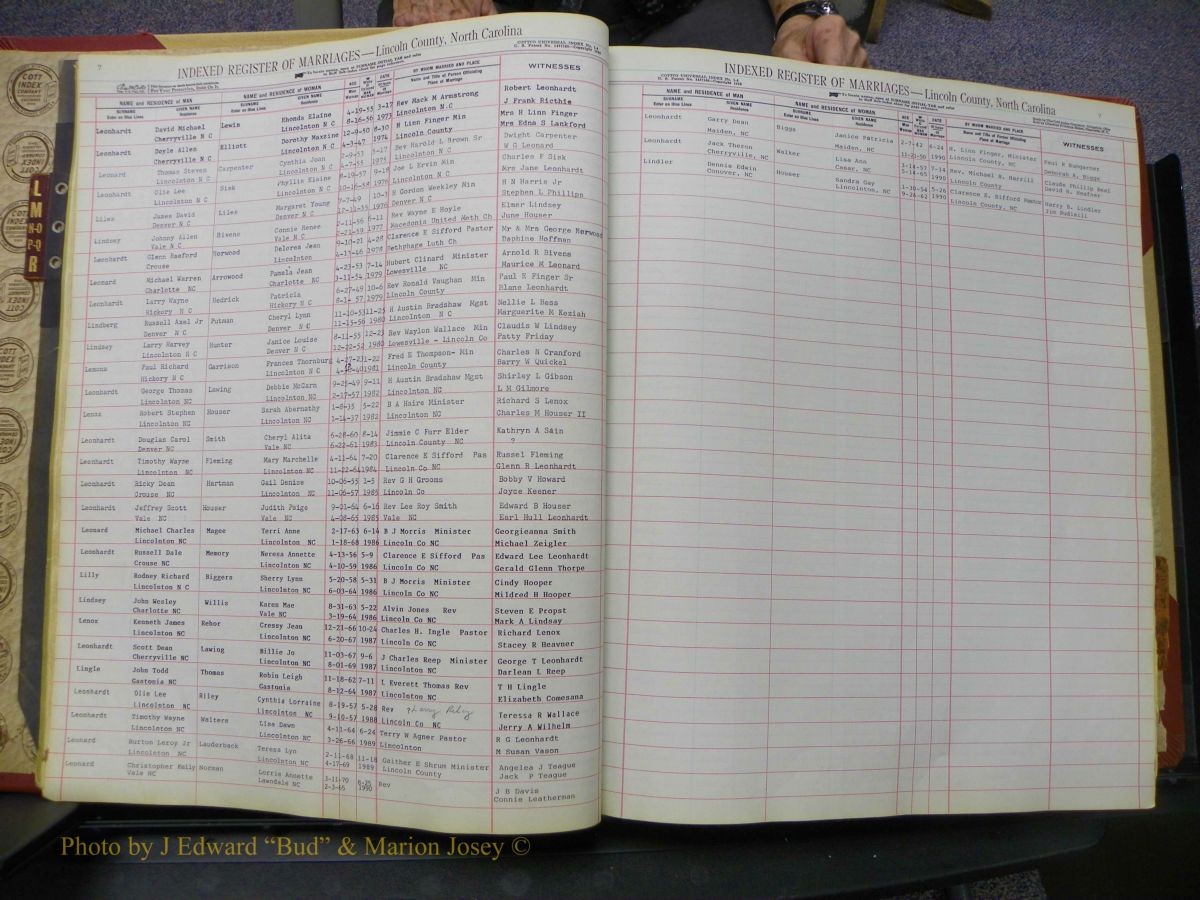 INDEXED REGISTER OF MARRIAGES—Lincoln County, North Carolina
NAME and RESIDENCE OF MAN NAME and RESIDENCE OF WOMAN BY WHOM MARRIED AND PLACE WITNESSES
Leonhardt David Michael Lewis Rhonda Elaine 4-19-55 3-17 Rev Mack M Armstrong Robert Leonhardt
Cherryville N C Lincolnton N C 8-16-56 1973 Lincolnton N.C J Frank Ricthie
Leonhardt Doyle Allen Elliott Dorothy Maxzine 12-9-50 8-30 H Linn Finger Min Mrs H Linn Finger
Cherryville N C Lincolnton N C 4-3-47 1974 Lincoln County Mrs Edna S Lankford
Leonard Thomas Steven Carpenter Cynthia Joan Rev Harold L Brown Sr Dwight Carpenter
Lincolnton N C Lincolnton N C 1975 Lincolnton N C W G Leonard
Leonhardt Olie Lee Sisk Phyllis Elaine 8-19-57 9-18 Joe L Ervin Min Charles F Sisk
Lincolnton N C 10-16-58 1976 Lincolnton N C Mrs Jane Leonhardt
Liles James David Liles Margaret Young 7-7-49 H Gordon Weekley Min H N Harris Jr
Denver N C Denver N C 1976 Denver N C Stephen L Phillips
Lindsey Johnny Allen Bivens Connie Renee 2-11-56 6-11 Rev Wayne E Hoyle Elmer Lindsey
Vale N C Vale N C 2-21-59 1977 Macedonia United Meth Ch June Houser
Leonhardt Glenn Raeford Norwood Delores Jean 9-10-21 4-28 Clarence E Sifford Pastor Mr & Mrs George Norwood
Crouse Lincolnton 4-13-46 1978 Bethphage Luth Ch Daphine Hoffman
Leonard Michael Warren Arrowood Pamela Jean 4-23-53 7-14 Hubert Clinard Minister Arnold R Bivens
Charlotte NC Charlotte NC 3-11-54 1979 Lowesville NC Maurice M Leonard
Leonhardt Larry Wayne Hedrick Patricia 6-27-49 10-6 Rev Ronald Vaughan Min Paul E Finger Sr
Hickory N C Hickory N C 8-1-57 1979 Lincoln County Blane Leonhardt
Lindberg Russell Axel Jr Putman Cheryl Lynn 11-10-53 11-25 H Austin Bradshaw Mgst Nellie L Bess
Denver N C Denver N C 11-13-56 1980 Lincolnton N C Marguerite M Keziah
Lindsey Larry Harvey Hunter Janice Louise 8-11-55 12-23 Rev Waylon Wallace Min Claudis W Lindsey
Lincolnton N C Denver N C 12-22-52 1980 Lowesville - Lincoln Co Patty Friday
Lemons Paul Richard Garrison Frances Thornburg 4-27-23 1-22 Fred E Thompson- Min Charles N Cranford
Hickory N C Lincolnton N C 1981 Lincoln County Barry W Quickel
Leonhardt George Thomas Lawing Debbie McCarn 9-25-49 9-11 H Austin Bradshaw Mgst Shirley L Gibson
Lincolnton NC Lincolnton NC 2-17-57 1982 Lincolnton NC L M Gilmore
Lenox Robert Stephen Houser Sarah Abernathy 1-8-35 5-22 B A Haire Minister Richard S Lenox
Lincolnton NC Lincolnton NC 1-14-37 1982 Lincolnton NC Charles M Houser II
Leonhardt Douglas Carol Smith Cheryl Alita 6-28-60 8-14 Jimmie C Furr Elder Kathryn A Sain
Denver NC Vale NC 6-22-61 1983 Lincoln County NC ?
Leonhardt Timothy Wayne Fleming Mary Marchelle 4-11-64 7-20 Clarence E Sifford Pas Russel Fleming
Lincolnton NC Lincolnton NC 11-22-64 1984 Lincoln Co NC Glenn R Leonhardt
Leonhardt Ricky Dean Hartman Gail Denise 10-06-55 1-5 Rev G H Grooms Bobby V Howard
Crouse NC Lincolnton NC 11-06-57 1985 Lincoln Co Joyce Keener
Leonhardt Jeffrey Scott Houser Judith Paige 9-01-64 6-16 Rev Lee Roy Smith Edward B Houser
Vale NC Vale NC 4-08-65 1985 Vale NC Earl Hull Leonhardt
Leonard Michael Charles Magee Terri Anne 2-17-63 6-14 B J Morris Minister Georgieanna Smith
Lincolnton NC Lincolnton NC 1-18-68 1986 Lincoln Co NC Michael Zeigler
Leonhardt Russell Dale Memory Neresa Annette 4-13-56 5-9 Clarence E Sifford Pas Edward Lee Leonhardt
Crouse NC Lincolnton NC 4-10-59 1986 Lincoln Co NC Gerald Glenn Thorpe
Lilly Rodney Richard Biggers Sherry Lynn 5-20-58 5-31 B J Morris Minister Cindy Hooper
Lincolnton N C Lincolnton NC 6-03-64 1986 Lincoln Co NC Mildred H Hooper
Lindsey John Wesley Willis Karen Mae 8-31-63 5-22 Alvin Jones Rev Steven E Propst
Charlotte NC Vale NC 3-19-64 1986 Lincoln Co NC Mark A Lindsay
Lenox Kenneth James Rehor Cressy Jean 12-21-66 10-24 Charles H. Ingle Pastor Richard Lenox
Lincolnton NC Lincolnton NC 6-20-67 1987 Lincoln Co NC Stacey R Heavner
Leonhardt Scott Dean Lawing Billie Jo 11-03-67 9-6 J Charles Reep Minister George T Leonhardt
Cherryville NC Lincolnton NC 8-01-69 1987 Lincolnton NC Darlean L Reep
Lingle John Todd Thomas Robin Leigh 11-18-62 7-11 L Everett Thomas Rev T H Lingle
Gastonia NC Gastonia 8-12-64 1987 Lincolnton NC Elizabeth Comesana
Leonhardt Olie Lee Riley Cynthia Lorraine 8-19-57 5-28 Rev ? Larry Riley Teressa R Wallace
Lincolnton NC Lincolnton NC 9-10-57 1988 Lincoln Co NC Jerry A Wilhelm
Leonhardt Timothy Wayne Walters Lisa Dawn 4-11-64 6-24 Terry W Agner Pastor R G Leonhardt
Lincolnton NC Lincolnton NC 3-26-66 1989 Lincolnton M Susan Vason
Leonhard Burton Leroy Jr Lauderback Teresa Lyn 2-11-68 11-18 Gaither E Shrum Minister Angelea J Teague
Lincolnton NC Lincolnton NC 4-17-69 1989 Lincoln County Jack P Teague
Leonard Christopher Emily Norman Lorrie Annette 3-11-70 8-25 Rev J B Davis
Vale NC Lawndale NC 2-3-65 1990 Connie Leatherman
INDEXED REGISTER OF MARRIAGES—Lincoln County, North Carolina
NAME and RESIDENCE OF MAN NAME and RESIDENCE OF WOMAN BY WHOM MARRIED AND PLACE WITNESSES
Leonhardt Garry Dean Biggs Janice Patricia 2-7-42 6-24 H. Linn Finger, Minister Paul R Bumgarner
Maiden, NC Maiden, NC 11-21-50 1990 Lincoln County, NC Deborah A. Biggs
Leonhardt Jack Theron Walker Lisa Ann 7-14 Rev. Michael B. Harrill Claude Phillip Beal
Cherryville, NC Casar, NC 1990 Lincoln County David B. Heafner
Lindler Dennis Edwin Houser Sandra Gay 1-30-54 5-26 Clarence E. Sifford Harry B. Lindler
Conover, NC Lincolnton, NC 9-26-62 1990 Lincoln County, NC Jim Rudisill
COTT INDEX COMPANY
L M N O P Q R
Photo by J Edward “Bud” & Marion Josey ©